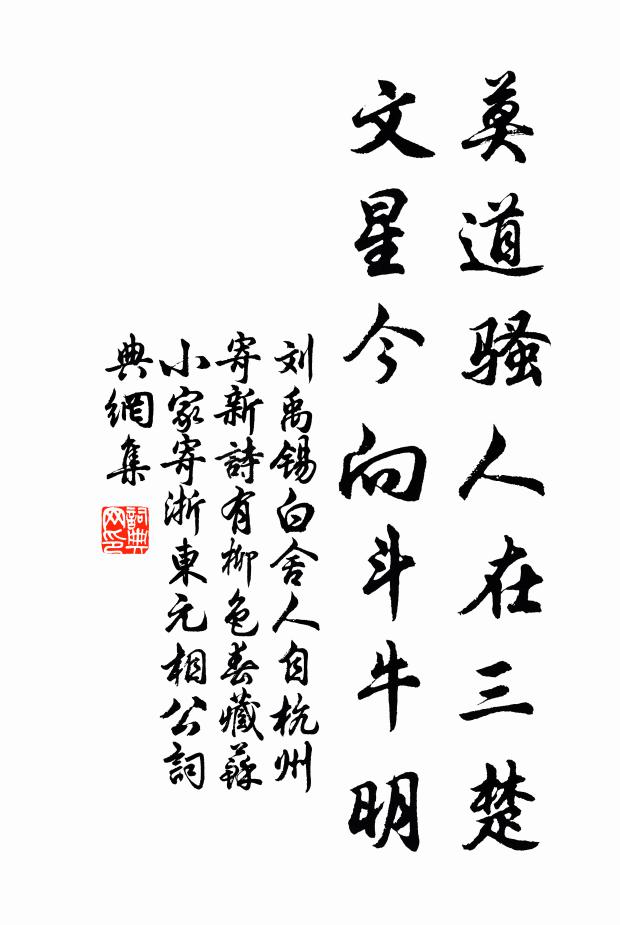 莫道骚人在三楚
文星今向斗牛明
刘禹锡白舍人自杭州
寄新詩有柳色春藏蘇
小家寄浙東元相公詞
典網集
詞典
网印